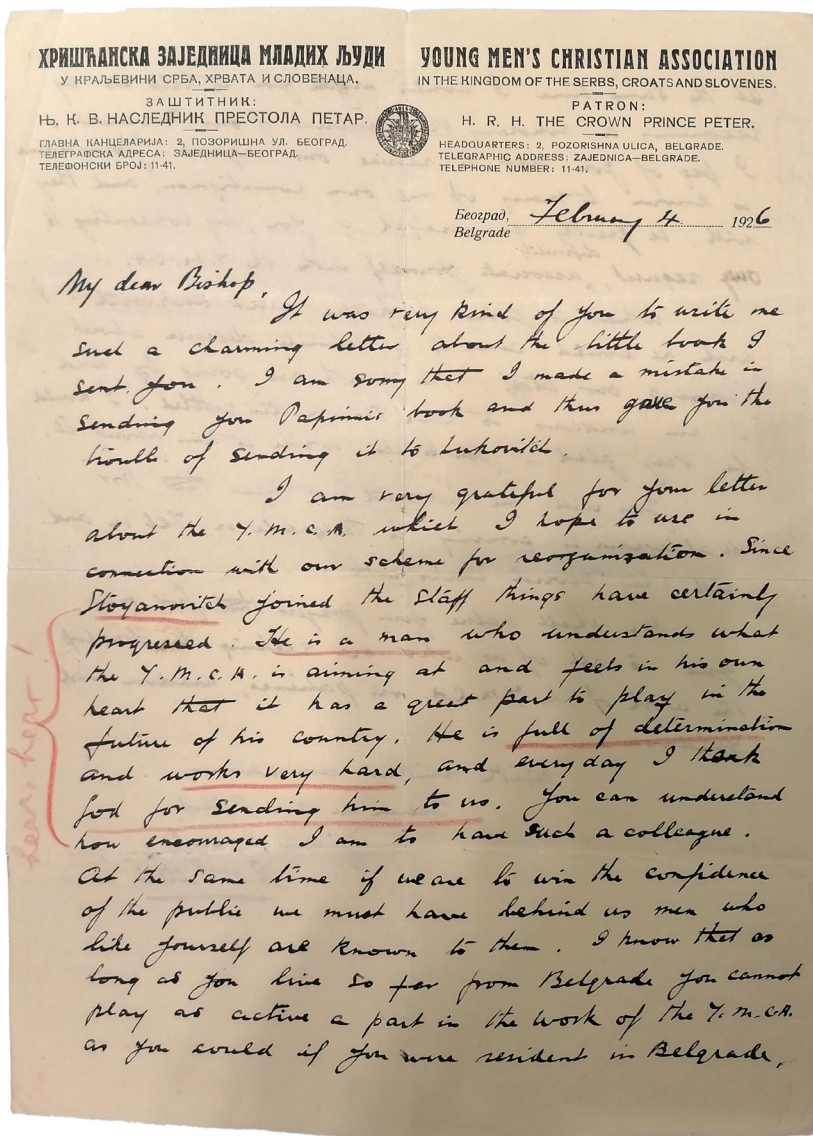 ХРИШЋАНСКА ЗАЈЕДНИЦА МЛАДИХ ЉУДИ
У КРАЉЕВИНИ СРБА, ХРВАТА И СЛОВЕНАЦА.
ЗАШТИТНИК:
Њ. К. В. НАСЛЕДНИК ПРЕСТОЛА ПЕТАР.
ГЛАВНА КАНЦЕЛАРИЈА: 2, ПОЗОРИШНА УЛ. БЕОГРАД.
ТЕЛЕГРАФСКА АДРЕСА: ЗАЈЕДНИЦА—БЕОГРАД.
ТЕЛЕФОНСКИ БРОЈ: 11-41.
YOUNG MEN'S CHRISTIAN ASSOCIATION
IN THE KINGDOM OF THE SERBS, CROATS AND SLOVENES.
PATRON:
H. R. H. THE CROWN PRINCE PETER.
HEADQUARTERS: 2, POZORISHNA ULICA, BELGRADE.
TELEGRAPHIC ADDRESS: ZAJEDNICA—BELGRADE.
TELEPHONE NUMBER: 11-41.
Београд, February 4 1926
Belgrade
My dear Bishop,
It was very kind of you to write me
such a charming letter about the little book I
sent you. I am sorry that I made a mistake in
sending you Papinis book and thus gave you the
trouble of sending it to Lukovitch.
I am very grateful for your letter
about the Y.M.C.A. which I hope to use in
connection with our scheme for reorganization. Since
Stoyanovitch joined the staff things have certainly
progressed. He is a man who understands what
the Y.M.C.A. is aiming at and feels in his own
heart that it has a great part to play in the
future of his country. He is full of determination
and works very hard, and everyday I thank
God for sending him to us. You can understand
how encouraged I am to have such a colleague.
At the same time if we are to win the confidence
of the public we must have behind us men who
like yourself are known to them. I know that as
long as you live so far from Belgrade you cannot
play as active a part in the work of the Y.M.C.A.
as you could if you were resident in Belgrade,
hear, hear!